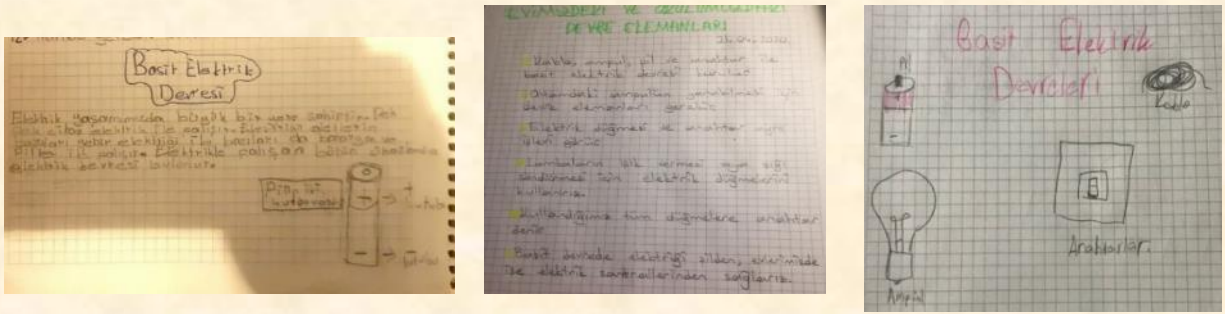 Basit Elektrik
Devresi
Elektrik yaşamımızda büyük bir yere sahiptir.
elektrik ile çalışır.
elektriği ile bazıları da batarya ve
piller ile çalışır. Elektrikle çalışan bütün
elektrik devresi bulunur.
Pilin iki
kutubu
+
-
EVİMİZDEKİ VE OKULUMUZDAKİ
DEVRE ELEMANLARI
2020
Kablo, ampul, pil ve anahtar ile
basit elektrik devresi kurulur.
devre elemanları gerekir.
Elektrik düğmesi ve anahtar aynı
işleri görür.
Lambaların ışık vermesi veya ışığı
söndürmesi için elektrik düğmelerini
kullanırız.
Kullandığımız tüm düğmelere anahtar
denir.
Basit devrede elektriği pilden, evlerimizde
ise elektrik santrallerinden sağlarız.
Basit Elektrik
Devreleri
Pil
-
Kablo
Ampül
Anahtarlar